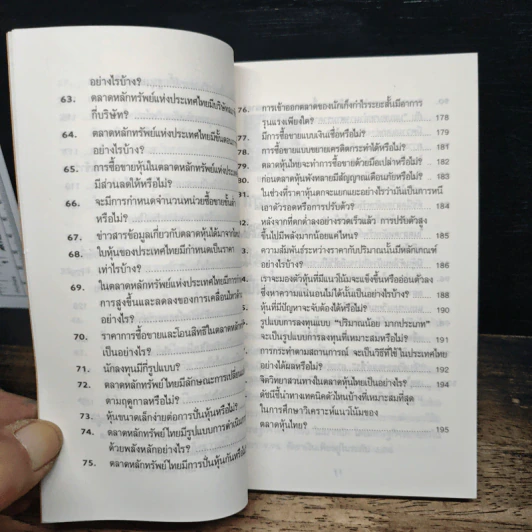 อย่างไรบ้าง?
63. ตลาดหลักทรัพย์แห่งประเทศไทยมีบริษัท
กี่บริษัท?
64. ตลาดหลักทรัพย์แห่งประเทศไทยมีขั้นตอน
อย่างไรบ้าง?
65. การซื้อขายหุ้นในตลาดหลักทรัพย์แห่งประเทศ
มีส่วนลดให้หรือไม่?
66. จะมีการกำหนดจำนวนหน่วยซื้อขายขั้นต่ำ
หรือไม่?
67. ข่าวสารข้อมูลเกี่ยวกับตลาดหุ้นได้มาจาก
68. ใบหุ้นของประเทศไทยมีกำหนดเป็นราคา
เท่าไรบ้าง?
69. ในตลาดหลักทรัพย์แห่งประเทศไทยมีการ
การสูงขึ้นและลดลงของการเคลื่อนไหว
อย่างไร?
70. ราคาการซื้อขายและโอนสิทธิในตลาดหลัก
เป็นอย่างไร?
71. นักลงทุนมีกี่รูปแบบ?
72. ตลาดหลักทรัพย์ไทยมีลักษณะการ
ตามฤดูกาลหรือไม่?
73. หุ้นขนาดเล็กง่ายต่อการปั่นหุ้นหรือไม่?
74. ตลาดหลักทรัพย์ไทยมีรูปแบบการดำเนิน
ด้วยพลังหลักอย่างไร?
75. ตลาดหลักทรัพย์ไทยมีการปั่นหุ้นกันหรือ
76. การเข้าออกตลาดของนักเก็งกำไรระยะสั้นมีอาการ
รุนแรงเพียงใด? 178
มีการซื้อขายแบบเงินเชื่อหรือไม่? 179
การซื้อขายแบบขยายเครดิตกระทำได้หรือไม่? 180
ตลาดหุ้นไทยจะทำการซื้อขายด้วยมือเปล่าหรือไม่? 181
ก่อนตลาดหุ้นพังทลายมีสัญญาณเตือนภัยหรือไม่? 182
ในช่วงที่ราคาหุ้นตกจะแยกแยะอย่างไรว่ามันเป็นการหนี
เอาตัวรอดหรือการปรับตัว?
หลังจากที่ตกต่ำลงอย่างรวดเร็วแล้ว การปรับตัวสูง
ขึ้นไปมีพลังมากน้อยแค่ไหน?
ความสัมพันธ์ระหว่างราคากับปริมาณนั้นมีหลักเกณฑ์
อย่างไรบ้าง? 185
เราจะมองตัวหุ้นที่มีแนวโน้มจะแข็งขึ้นหรืออ่อนตัวลง
ซึ่งหาความแน่นอนไม่ได้นั้นเป็นอย่างไรบ้าง? 188
หุ้นที่มีปัญหาจะจับต้องได้หรือไม่? 190
รูปแบบการลงทุนแบบ "ปริมาณน้อย มากประเภท"
จะเป็นรูปแบบการลงทุนที่เหมาะสมหรือไม่?
การกระทำตามสถานการณ์ จะเป็นวิธีที่ใช้ ในประเทศไทย
อย่างได้ผลหรือไม่? 192
จิตวิทยาสวนทางในตลาดหุ้นไทยเป็นอย่างไร? 194
ดัชนีชี้นำทางเทคนิคตัวไหนเป็นตัวที่เหมาะสมที่สุด
ในการศึกษาวิเคราะห์แนวโน้มของ
ตลาดหุ้นไทย? 195